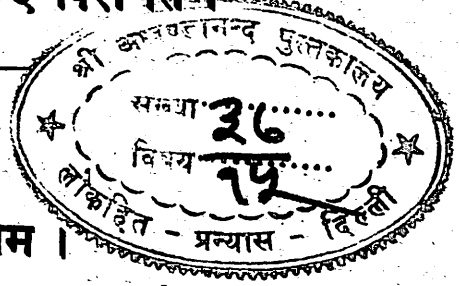 श्री अखण्डानन्द पुस्तकालय
सख्या ३७
विषय १५
लोकहित - प्रन्यास - दिल्ली
म ।